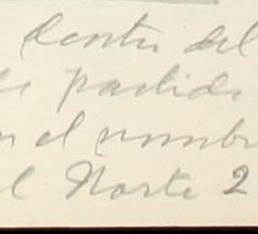 dentro del
partido
el nombr
el Norte 2